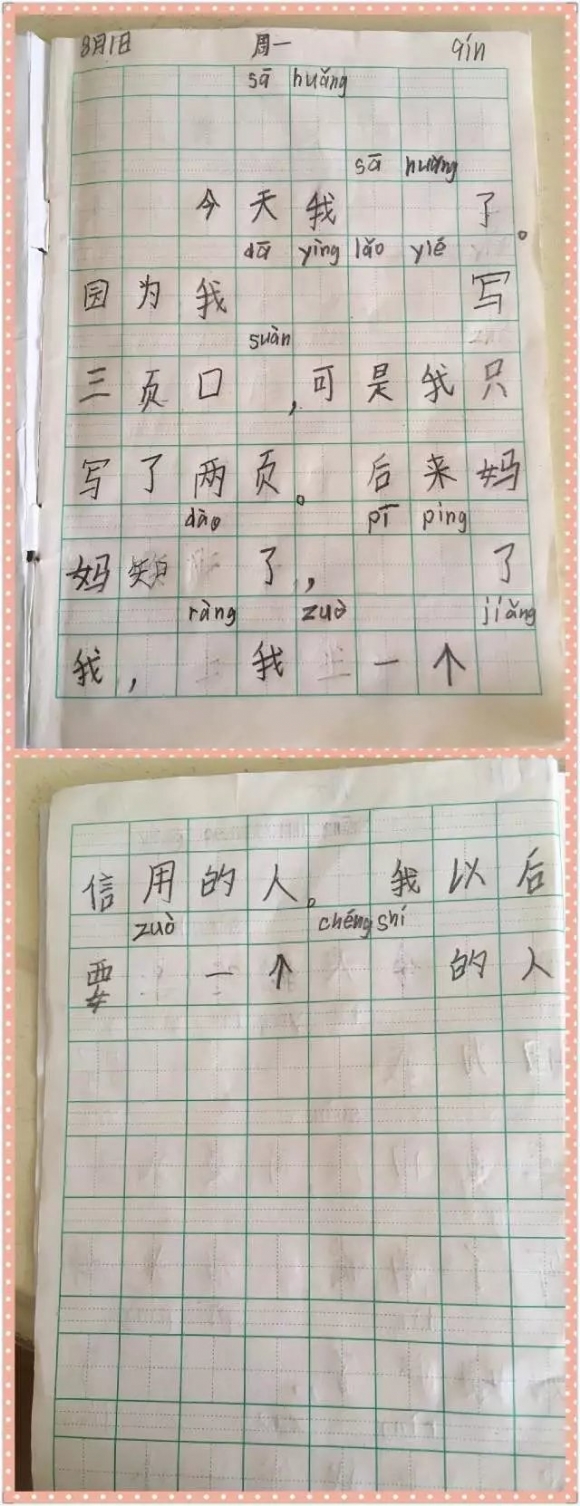 8月1日 周一 qín
sā huǎng
sā huǎng
今天我 了。
dā yìng lǎo yié
因为我 写
suàn
三页口 ，可是我只
写了两页。后来妈
dào pī píng
妈知 了， 了
ràng zuò jiǎng
我， 我 一个
信用的人。我以后
zuò chéng shí
要 一个 的人